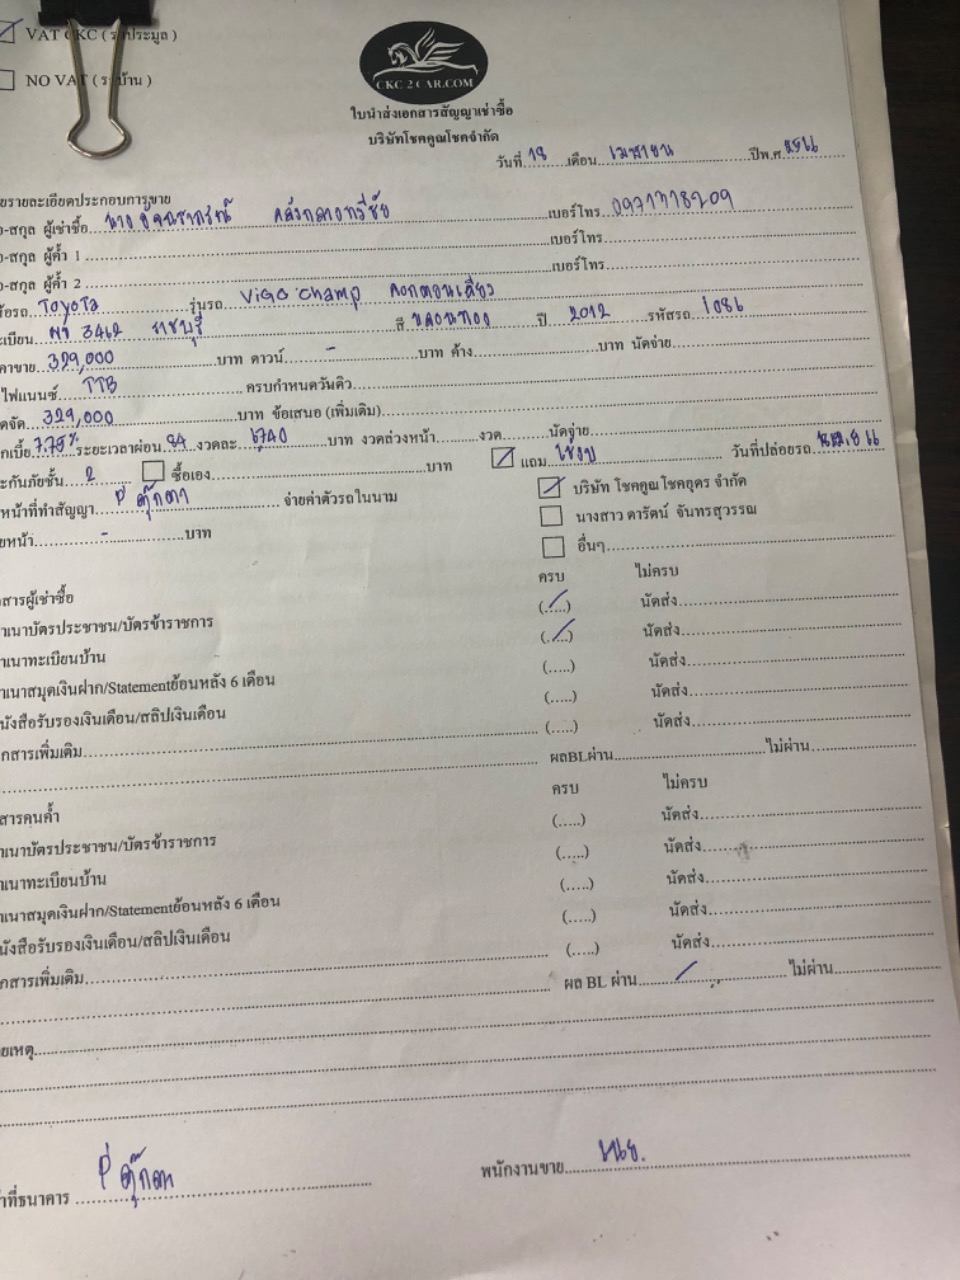 VAT CKC ( รถประมูล )
NO VAT ( รถบ้าน )
CKC 2 CAR.COM
ใบนำส่งเอกสารสัญญาเช่าซื้อ
บริษัทโชคคูณโชคจำกัด
วันที่ 18 เดือน เมษายน ปีพ.ศ. 2566
รายละเอียดประกอบการขาย
-สกุล ผู้เช่าซื้อ นาง เบอร์โทร 0971718209
-สกุล ผู้ค้ำ 1 เบอร์โทร
-สกุล ผู้ค้ำ 2 เบอร์โทร
รถ Toyota รุ่นรถ Vigo champ ตอนเดียว
3462 ราชบุรี สี ปี 2012 รหัสรถ 1086
329,000 บาท ดาวน์ - บาท ค้าง บาท นัดจ่าย
ไฟแนนซ์ TTB ครบกำหนดวันคิว
329,000 บาท ข้อเสนอ (เพิ่มเติม)
7.75% ระยะเวลาผ่อน 84 งวดละ 6740 บาท งวดล่วงหน้า งวด นัดจ่าย
2 ซื้อเอง บาท แถม วันที่ปล่อยรถ
หน้าที่ทำสัญญา ตุ๊กตา จ่ายค่าตัวรถในนาม บริษัท โชคคูณโชคอุดร จำกัด
หน้า - บาท นางสาว ดารัตน์ จันทรสุวรรณ
อื่นๆ
สารผู้เช่าซื้อ ครบ ไม่ครบ
เนาบัตรประชาชน/บัตรข้าราชการ (.....) นัดส่ง
เนาทะเบียนบ้าน (.....) นัดส่ง
เนาสมุดเงินฝาก/Statementย้อนหลัง 6 เดือน (.....) นัดส่ง
นังสือรับรองเงินเดือน/สลิปเงินเดือน (.....) นัดส่ง
กสารเพิ่มเติม (.....) นัดส่ง
ผลBLผ่าน ไม่ผ่าน
สารคนค้ำ ครบ ไม่ครบ
เนาบัตรประชาชน/บัตรข้าราชการ (.....) นัดส่ง
เนาทะเบียนบ้าน (.....) นัดส่ง
เนาสมุดเงินฝาก/Statementย้อนหลัง 6 เดือน (.....) นัดส่ง
นังสือรับรองเงินเดือน/สลิปเงินเดือน (.....) นัดส่ง
กสารเพิ่มเติม (.....) นัดส่ง
ผล BL ผ่าน ไม่ผ่าน
ยเหตุ
ที่ธนาคาร ตุ๊กตา พนักงานขาย